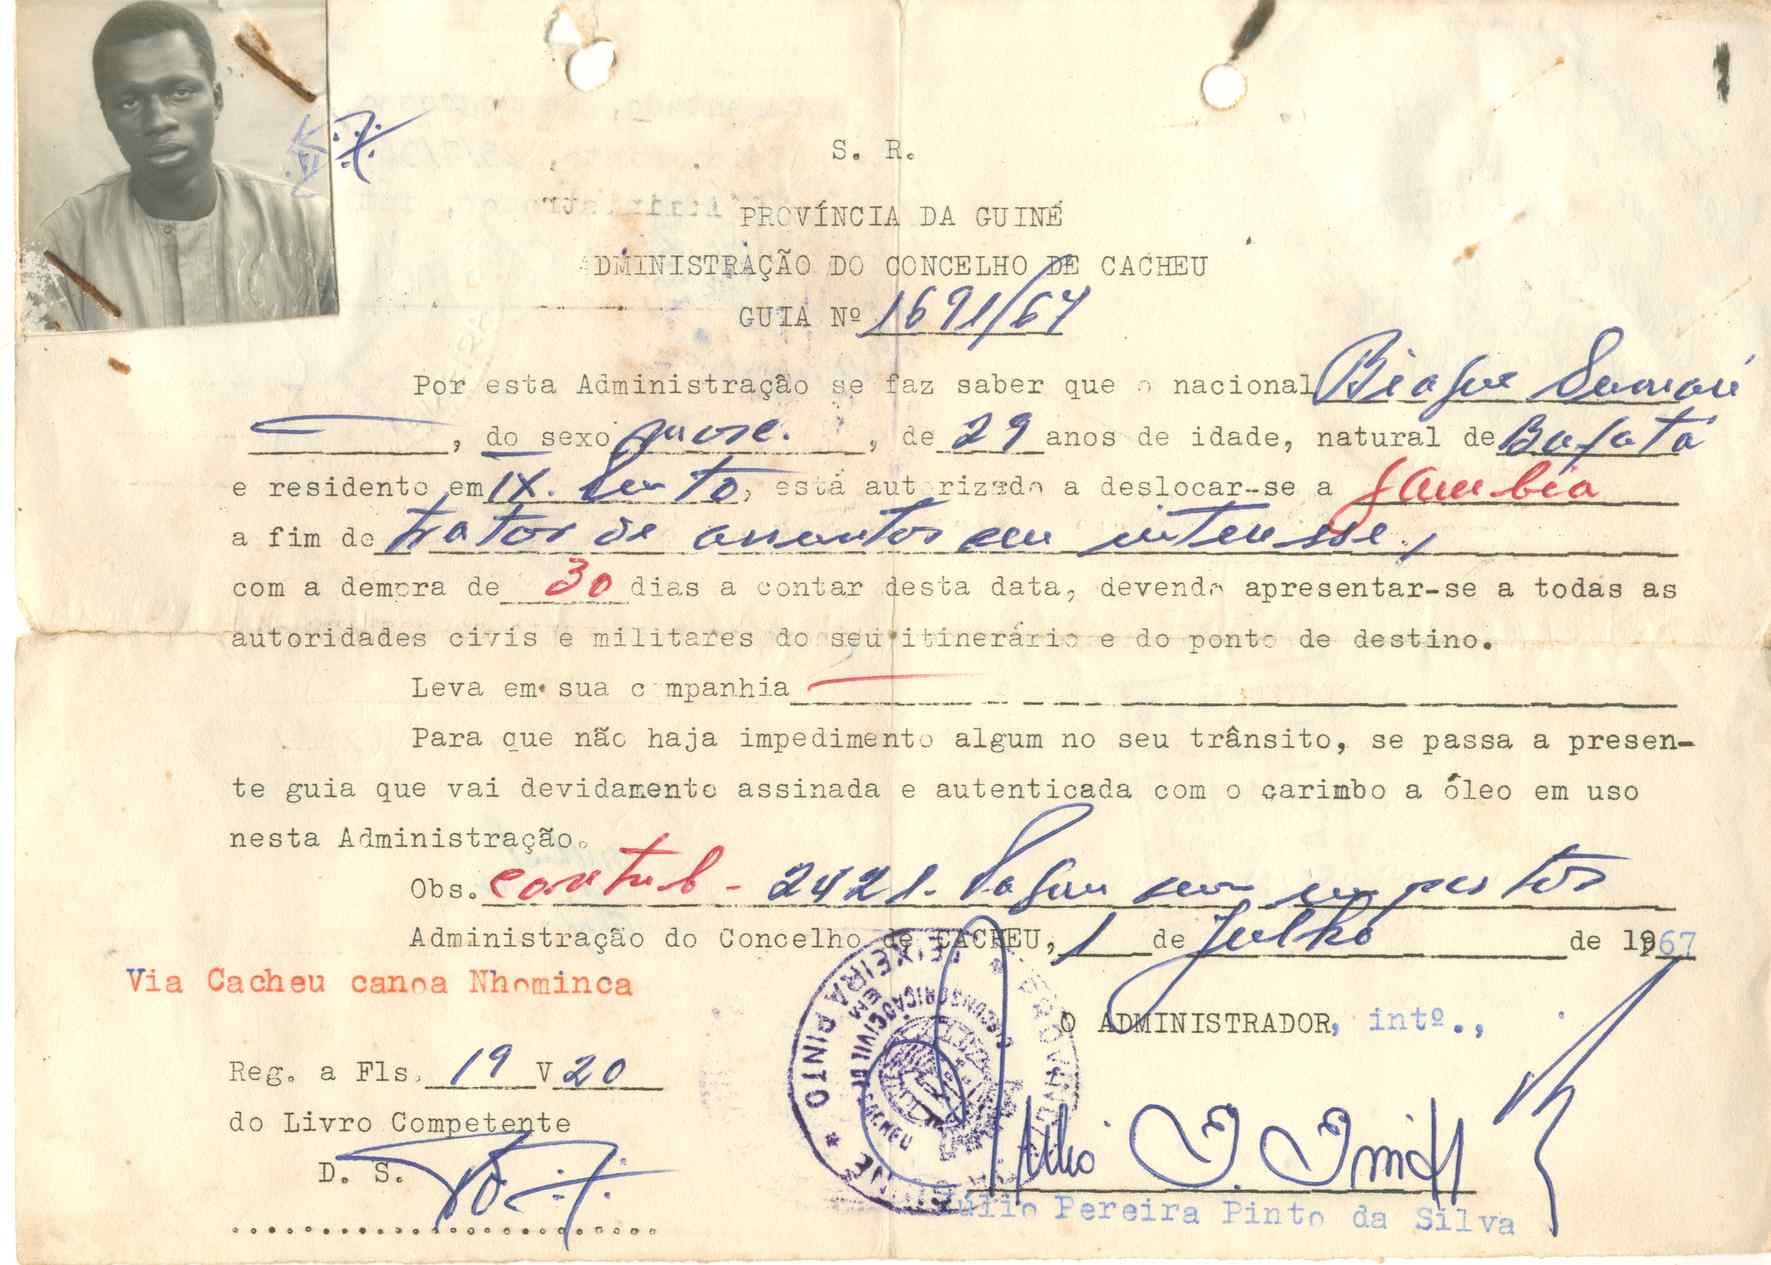 S. R.
PROVÍNCIA DA GUINÉ
ADMINISTRAÇÃO DO CONCELHO DE CACHEU
GUIA Nº 1691/67
Por esta Administração se faz saber que o nacional Biague
, do sexo masc. , de 29 anos de idade, natural de Bafatá
e residente em , está autorizado a deslocar-se a Gambia
a fim de tratar de assuntos seu interesse,
com a demora de 30 dias a contar desta data, devendo apresentar-se a todas as
autoridades civis e militares do seu itinerário e do ponto de destino.
Leva em sua companhia
Para que não haja impedimento algum no seu trânsito, se passa a presen-
te guia que vai devidamente assinada e autenticada com o carimbo a óleo em uso
nesta Administração.
Obs. contrib - 2421. Pagou seus impostos
Administração do Concelho de CACHEU, 1 de Julho de 1967
Via Cacheu canoa Nhominca
O ADMINISTRADOR, intº.,
Reg. a Fls. 19 V 20
do Livro Competente
D. S.
Júlio Pereira Pinto da Silva
TEIXEIRA PINTO * GUINÉ *
CIRCUNSCRIÇÃO CIVIL DE CACHEU